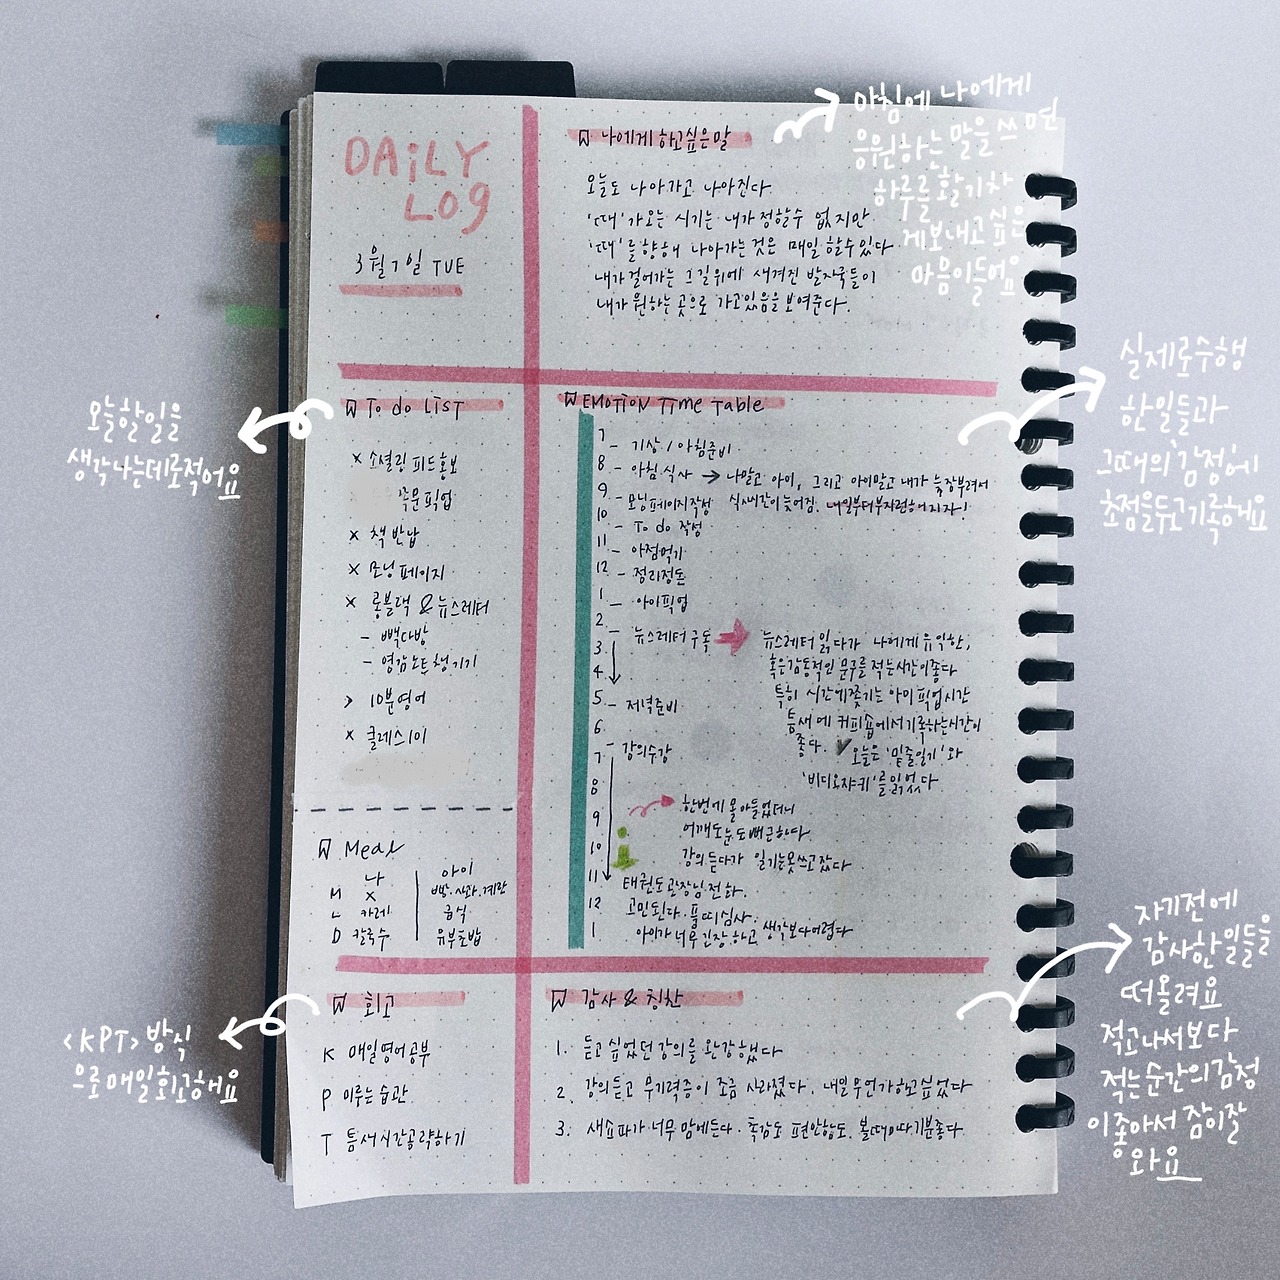 DAiLY
LOg
3월 7일 TUE
나에게 하고싶은말
오늘도 나아가고 나아진다
'때'가오는 시기는 내가 정할수 없지만
'때'를향해 나아가는것은 매일 할수있다
내가걸어가는 그길위에 새겨진 발자국들이
내가 원하는 곳으로 가고있음을보여준다.
아침에 나에게
응원하는 말을 쓰면
하루를 활기차
게보내고 싶은
마음이들어요
오늘할일을
생각나는데로적어요
To do LIST
x 소셜링 피드홍보
픽업
x 책 반납
x 모닝페이지
x 롱블랙 & 뉴스레터
- 빽다방
- 영감노트 챙기기
> 10분영어
x 클래스101
EMOTION TIme Table
7
- 기상 / 아침준비
8
- 아침식사 → 나말고 아이, 그리고 아이말고 내가 늦장부려서
9
- 모닝페이지작성 식사시간이늦어짐. 내일부터부지런해지자!
10
- To do 작성
11
- 아점먹기
12
- 정리정돈
1
- 아이픽업
2
- 뉴스레터 구독 → 뉴스레터 읽다가 나에게 유익한,
3
혹은감동적인 문구를 적는시간이좋다
4
특히 시간에쫓기는 아이픽업시간
5
- 저녁준비
틈새에 커피숍에서기록하는시간이
6
좋다. ✓ 오늘은 '밑줄일기'와
- 강의수강
7
'비디오쟈키'를읽었다
8
한번에 몰아들었더니
9
어깨도눈도뻐근하다.
10
강의듣다가 일기는못쓰고잤다
11
태권도관장님전화.
12
고민된다. 품띠심사.
1
아이가너무긴장하고, 생각보다어렵다
실제로수행
한일들과
그때의'감정'에
초점을두고기록해요
Meal
나
아이
M
X
빵.사과.계란
L
카레
급식
D
칼국수
유부초밥
회고
K 매일영어공부
P 미루는 습관
T 틈새시간공략하기
<KPT>방식
으로매일회고해요
감사 & 칭찬
1. 듣고 싶었던 강의를 완강했다
2. 강의듣고 무기력증이 조금 사라졌다. 내일무언가하고싶었다
3. 새쇼파가너무맘에든다. 촉감도 편안함도. 볼때마다기분좋다.
자기전에
감사한일들을
떠올려요
적고나서보다
적는순간의감정
이좋아서 잠이잘
와요